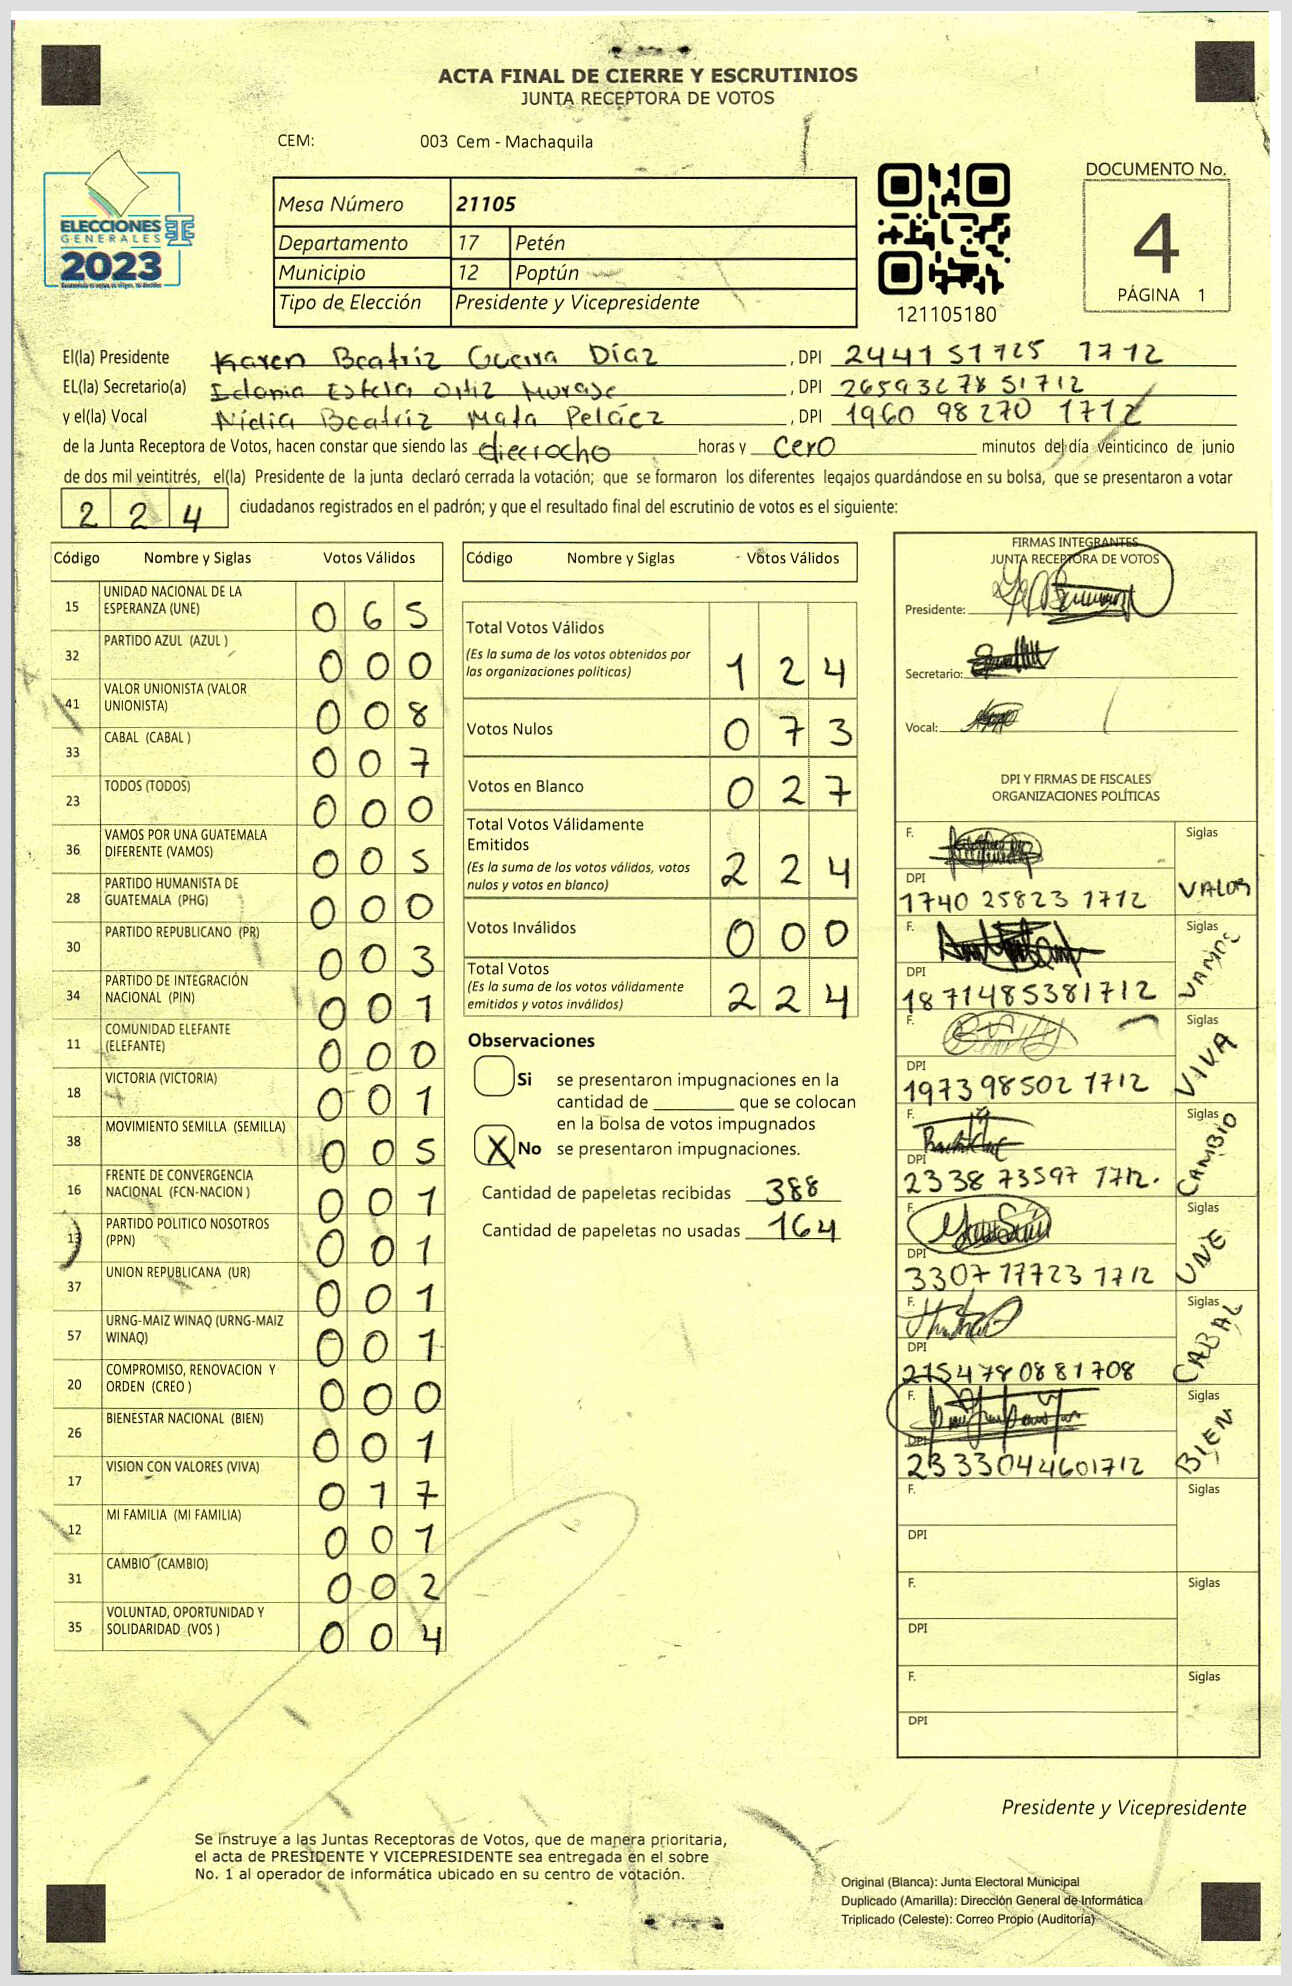 ACTA FINAL DE CIERRE Y ESCRUTINIOS
JUNTA RECEPTORA DE VOTOS
CEM: 003 Cem - Machaquila
ELECCIONES
GENERALES
2023
Mesa Número 21105
Departamento 17 Petén
Municipio 12 Poptún
Tipo de Elección Presidente y Vicepresidente
121105180
DOCUMENTO No.
4
PÁGINA 1
El(la) Presidente Karen Beatriz Guerra Díaz , DPI 2441 51725 1712
EL(la) Secretario(a) Estela Ortiz , DPI 26593278 51712
y el(la) Vocal Nidia Beatriz Mata Peláez , DPI 1960 98270 1712
de la Junta Receptora de Votos, hacen constar que siendo las dieciocho horas y cero minutos del día veinticinco de junio
de dos mil veintitrés, el(la) Presidente de la junta declaró cerrada la votación; que se formaron los diferentes legajos guardándose en su bolsa, que se presentaron a votar
224 ciudadanos registrados en el padrón; y que el resultado final del escrutinio de votos es el siguiente:
Código Nombre y Siglas Votos Válidos
15 UNIDAD NACIONAL DE LA
ESPERANZA (UNE) 065
32 PARTIDO AZUL (AZUL ) 000
41 VALOR UNIONISTA (VALOR
UNIONISTA) 008
33 CABAL (CABAL ) 007
23 TODOS (TODOS) 000
36 VAMOS POR UNA GUATEMALA
DIFERENTE (VAMOS) 005
28 PARTIDO HUMANISTA DE
GUATEMALA (PHG) 000
30 PARTIDO REPUBLICANO (PR) 003
34 PARTIDO DE INTEGRACIÓN
NACIONAL (PIN) 001
11 COMUNIDAD ELEFANTE
(ELEFANTE) 000
18 VICTORIA (VICTORIA) 001
38 MOVIMIENTO SEMILLA (SEMILLA) 005
16 FRENTE DE CONVERGENCIA
NACIONAL (FCN-NACION ) 001
13 PARTIDO POLITICO NOSOTROS
(PPN) 001
37 UNION REPUBLICANA (UR) 001
57 URNG-MAIZ WINAQ (URNG-MAIZ
WINAQ) 001
20 COMPROMISO, RENOVACION Y
ORDEN (CREO ) 000
26 BIENESTAR NACIONAL (BIEN) 001
17 VISION CON VALORES (VIVA) 017
12 MI FAMILIA (MI FAMILIA) 001
31 CAMBIO (CAMBIO) 002
35 VOLUNTAD, OPORTUNIDAD Y
SOLIDARIDAD (VOS ) 004
Código Nombre y Siglas Votos Válidos
Total Votos Válidos
(Es la suma de los votos obtenidos por
las organizaciones políticas) 124
Votos Nulos 073
Votos en Blanco 027
Total Votos Válidamente
Emitidos
(Es la suma de los votos válidos, votos
nulos y votos en blanco) 224
Votos Inválidos 000
Total Votos
(Es la suma de los votos válidamente
emitidos y votos inválidos) 224
Observaciones
Si se presentaron impugnaciones en la
cantidad de ________ que se colocan
en la bolsa de votos impugnados
X No se presentaron impugnaciones.
Cantidad de papeletas recibidas 388
Cantidad de papeletas no usadas 164
FIRMAS INTEGRANTES
JUNTA RECEPTORA DE VOTOS
Presidente:
Secretario:
Vocal:
DPI Y FIRMAS DE FISCALES
ORGANIZACIONES POLÍTICAS
F. Siglas
DPI
1740 25823 1712 VALOR
F. Siglas
DPI
1871485381712 VAMOS
F. Siglas
DPI
1973 98502 1712 VIVA
F. Siglas
DPI
2338 73597 1712. CAMBIO
F. Siglas
DPI
3307 17723 1712 UNE
F. Siglas
DPI
2154780881708 CABAL
F. Siglas
DPI
2333044601712 BIEN
F. Siglas
DPI
F. Siglas
DPI
F. Siglas
DPI
Presidente y Vicepresidente
Se instruye a las Juntas Receptoras de Votos, que de manera prioritaria,
el acta de PRESIDENTE Y VICEPRESIDENTE sea entregada en el sobre
No. 1 al operador de informática ubicado en su centro de votación.
Original (Blanca): Junta Electoral Municipal
Duplicado (Amarilla): Dirección General de Informática
Triplicado (Celeste): Correo Propio (Auditoría)